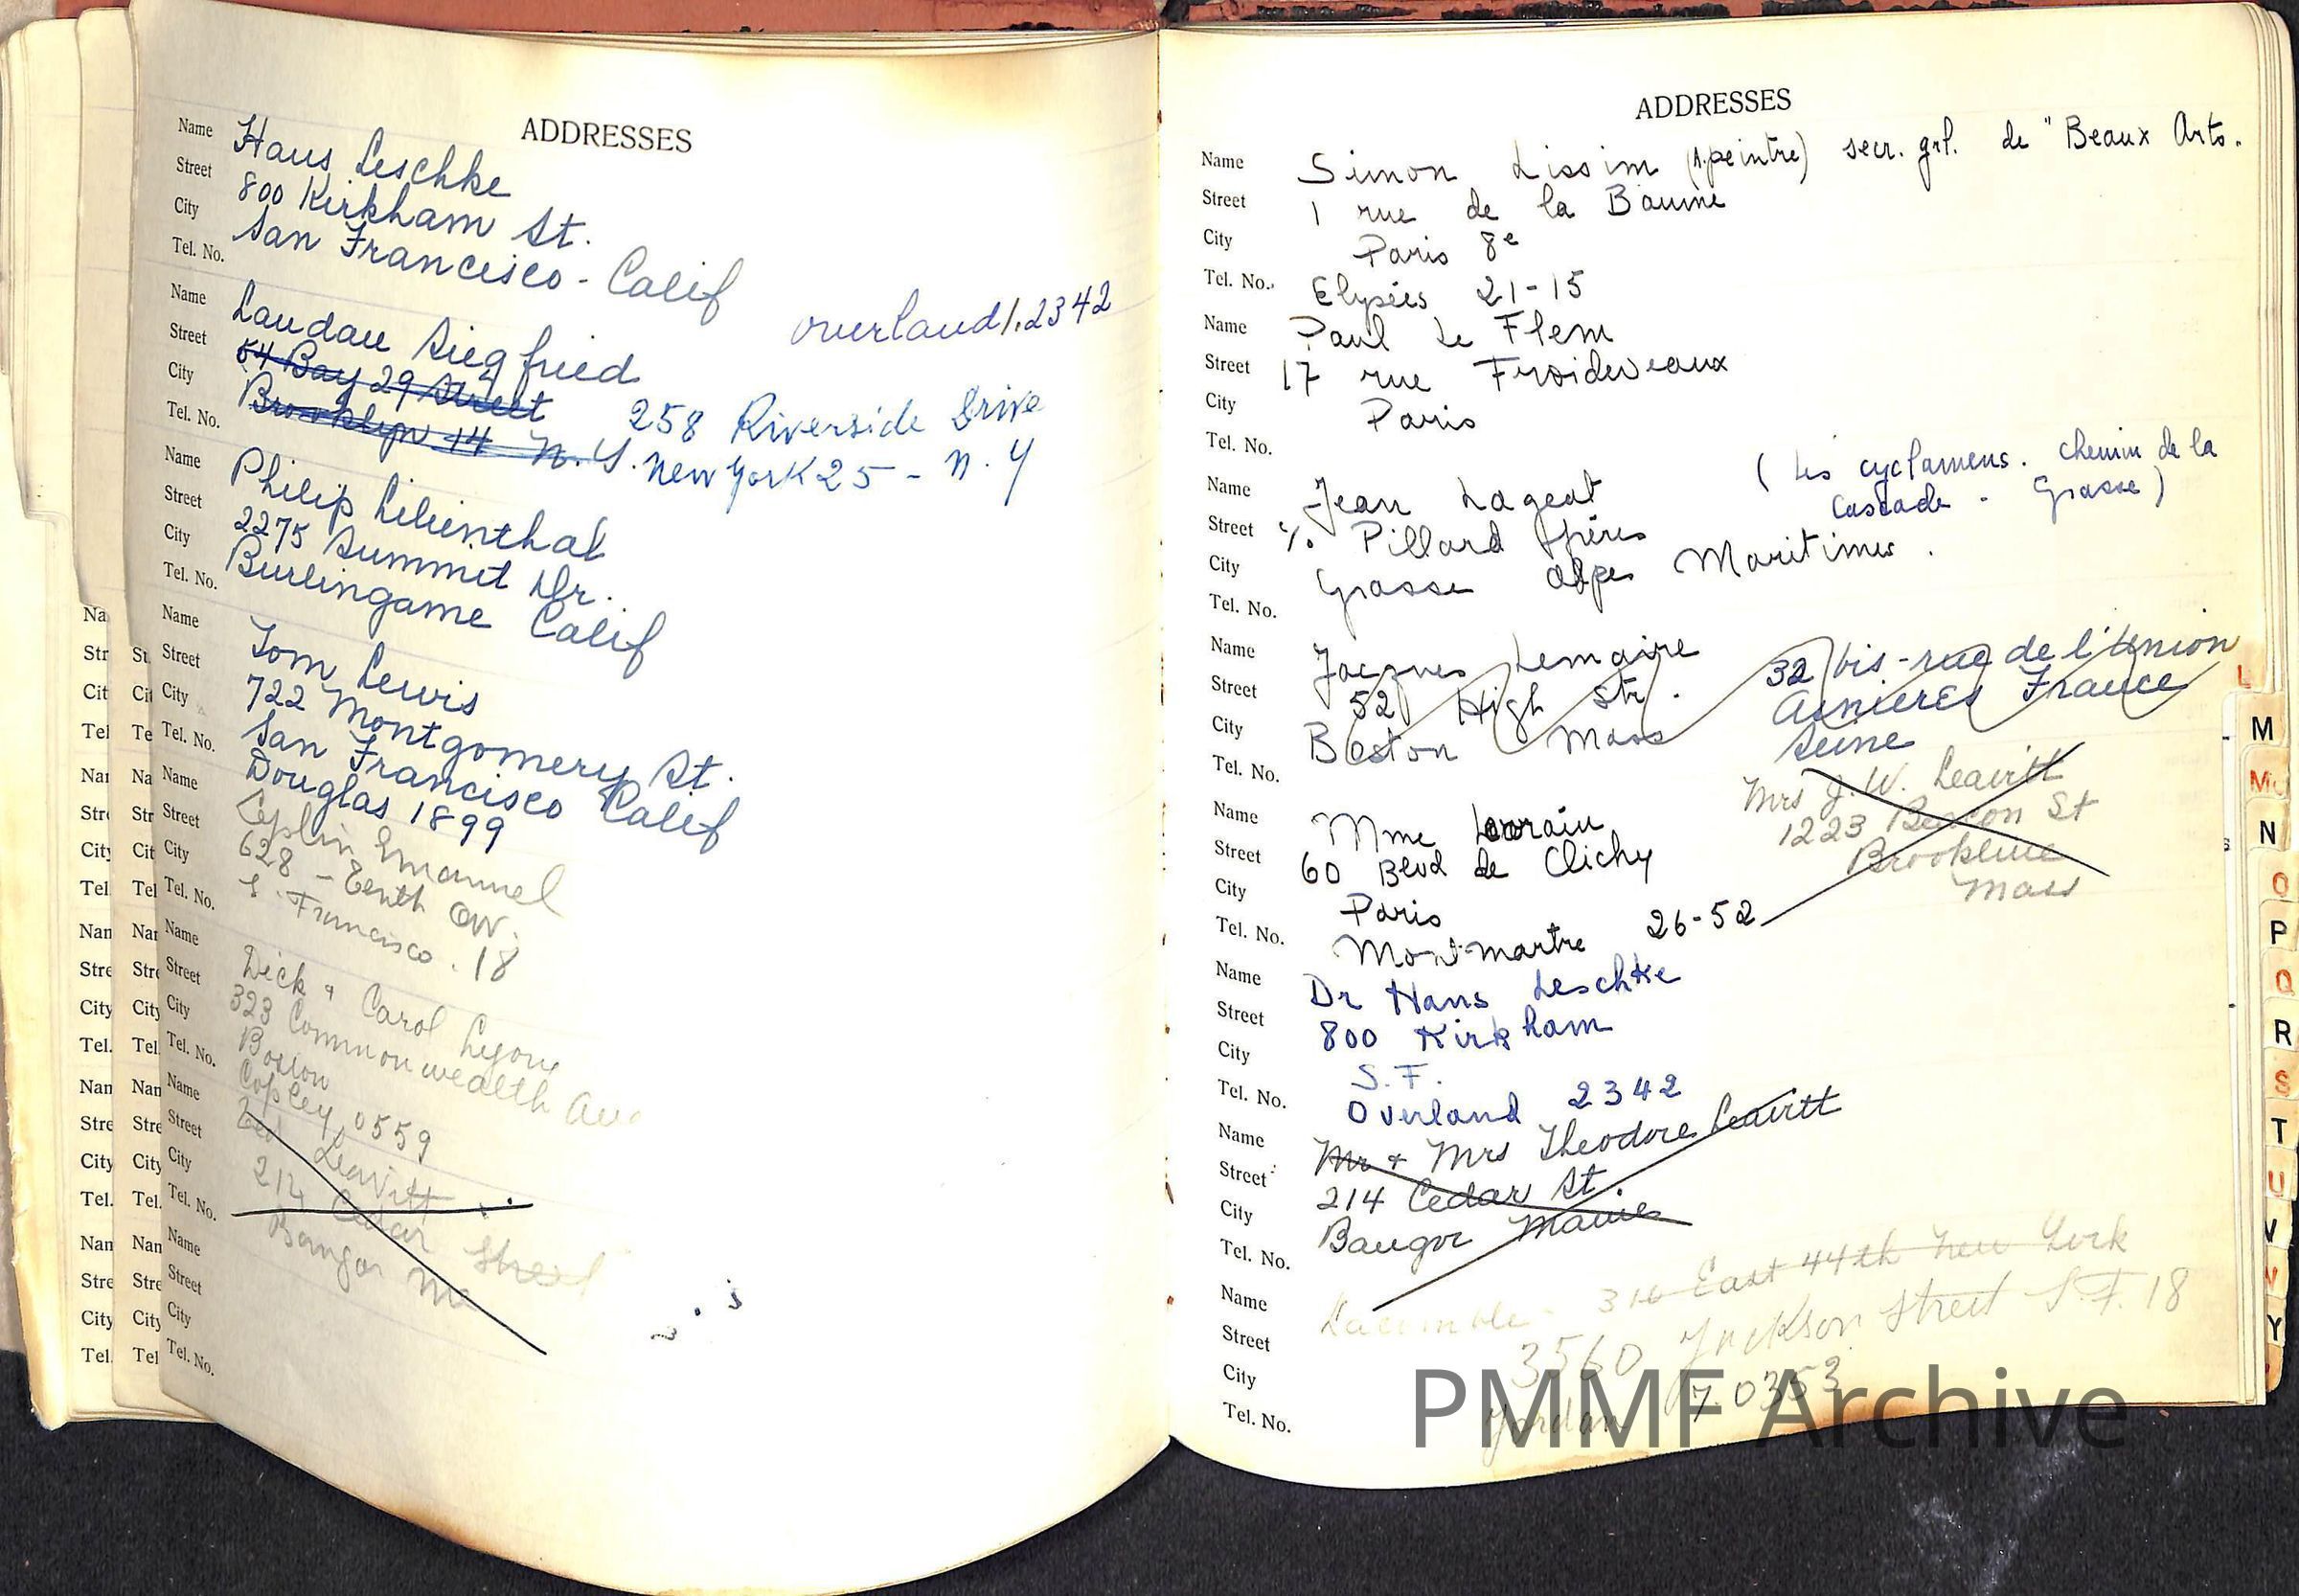 ADDRESSES
Name Hans Leschke
Street 800 Kirkham St.
City San Francisco - Calif
Tel. No. overland 1.2342
Name Landau Siegfried
Street 54 Bay 29 Street 258 Riverside Drive
City Brooklyn 14 N.Y. New York 25 - N.Y
Tel. No.
Name Philip Lilienthal
Street 2275 Summit Dr.
City Burlingame Calif
Tel. No.
Name Tom Lewis
Street 722 Montgomery St.
City San Francisco Calif
Tel. No. Douglas 1899
Name Leplin Emanuel
Street 628 - Tenth av.
City S. Francisco. 18
Tel. No.
Name Dick & Carol Lyons
Street 323 Commonwealth Ave
City Boston
Tel. No. Copley 0559
Name Leavitt
Street 214 Cedar Street
City Bangor Me
Tel. No.
Name
Street
City
Tel. No.
ADDRESSES
Name Simon Lissim (A.peintre) secr. grl. de "Beaux Arts.
Street 1 rue de la Baume
City Paris 8e
Tel. No. Elysées 21-15
Name Paul Le Flem
Street 17 rue Froidevaux
City Paris
Tel. No.
Name Jean Lageat (Les cyclamens. chemin de la
Cascade - Grasse)
Street %. Pillard frères
City Grasse Alpes Maritimes.
Tel. No.
Name Jacques Lemaire 32 bis - rue de l'Union
Street 52 High Str. Asnieres France
City Boston Mass Seine
Tel. No.
Mrs J.W. Leavitt
1223 Beacon St
Brookline
Mass
Name Mme Lorrain
Street 60 Blvd de Clichy
City Paris
Tel. No. Montmartre 26-52
Name Dr Hans Leschke
Street 800 Kirkham
City S.F.
Tel. No. Overland 2342
Name Mr & Mrs Theodore Leavitt
Street 214 Cedar St.
City Bangor Maine
Tel. No.
Name 316 East 44th New York
Street 3560 Jackson Street S.F. 18
City
Tel. No. Jordan 7.0353
L
M
Mc
N
O
P
Q
R
S
T
U
V
Y
PMMF Archive